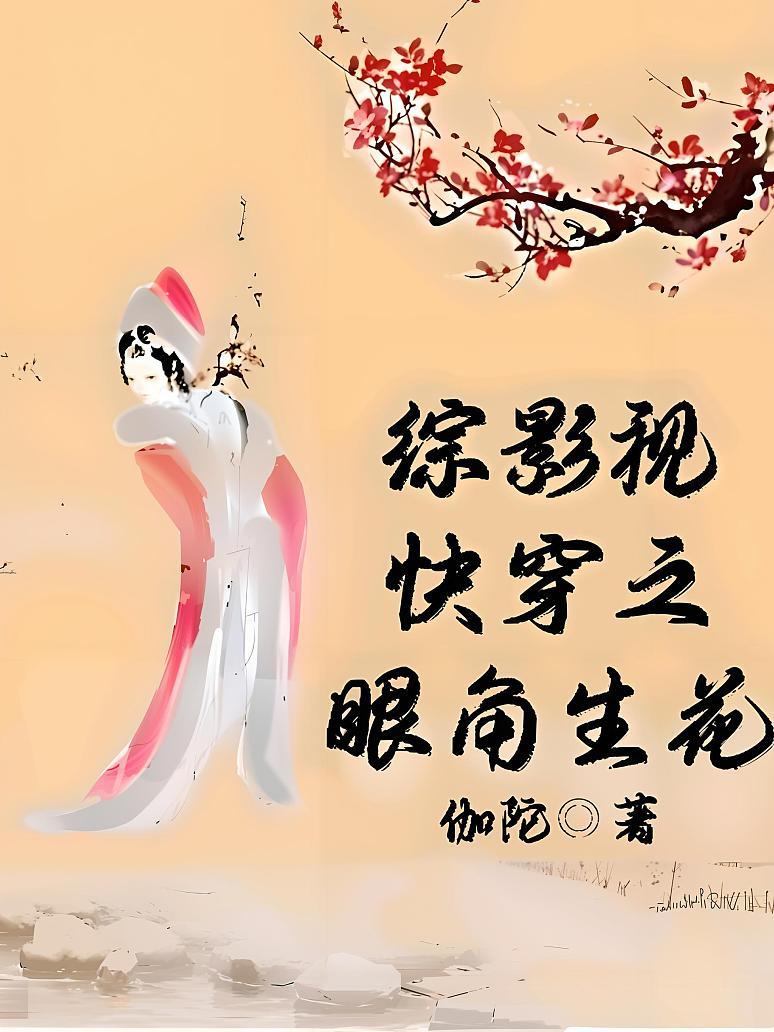 综影视
快穿之
眼角生花
伽陀◎著